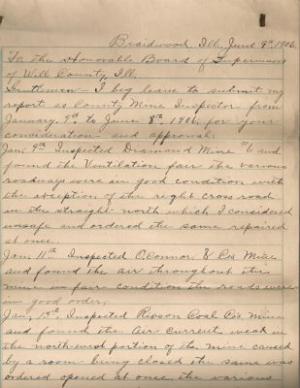 Braidwood Ill. June 9th 1906.
To the Honorable Board of Supervisors
of Will County, Ill.
Gentlemen - I beg leave to submit my
report as County Mine Inspector from
January. 9th to June 8th, 1906, for your
consideration and approval:
Jan, 9th Inspected Diamond Mine #1 and
found the Ventilation fair the various
roadways were in good condition with
the exception of the right cross road
in the straight north which I considered
unsafe and ordered the same repaired
at once.
Jan. 11th Inspected O'Connor & Cos Mine
and found the air throughout the
mine in fair condition the roads were
in good order,
Jan, 13th Inspected Coal Co's Mine
and found the Air Current weak in
the northwest portion of the mine caused
by a room being closed the same was
ordered opened at once the various